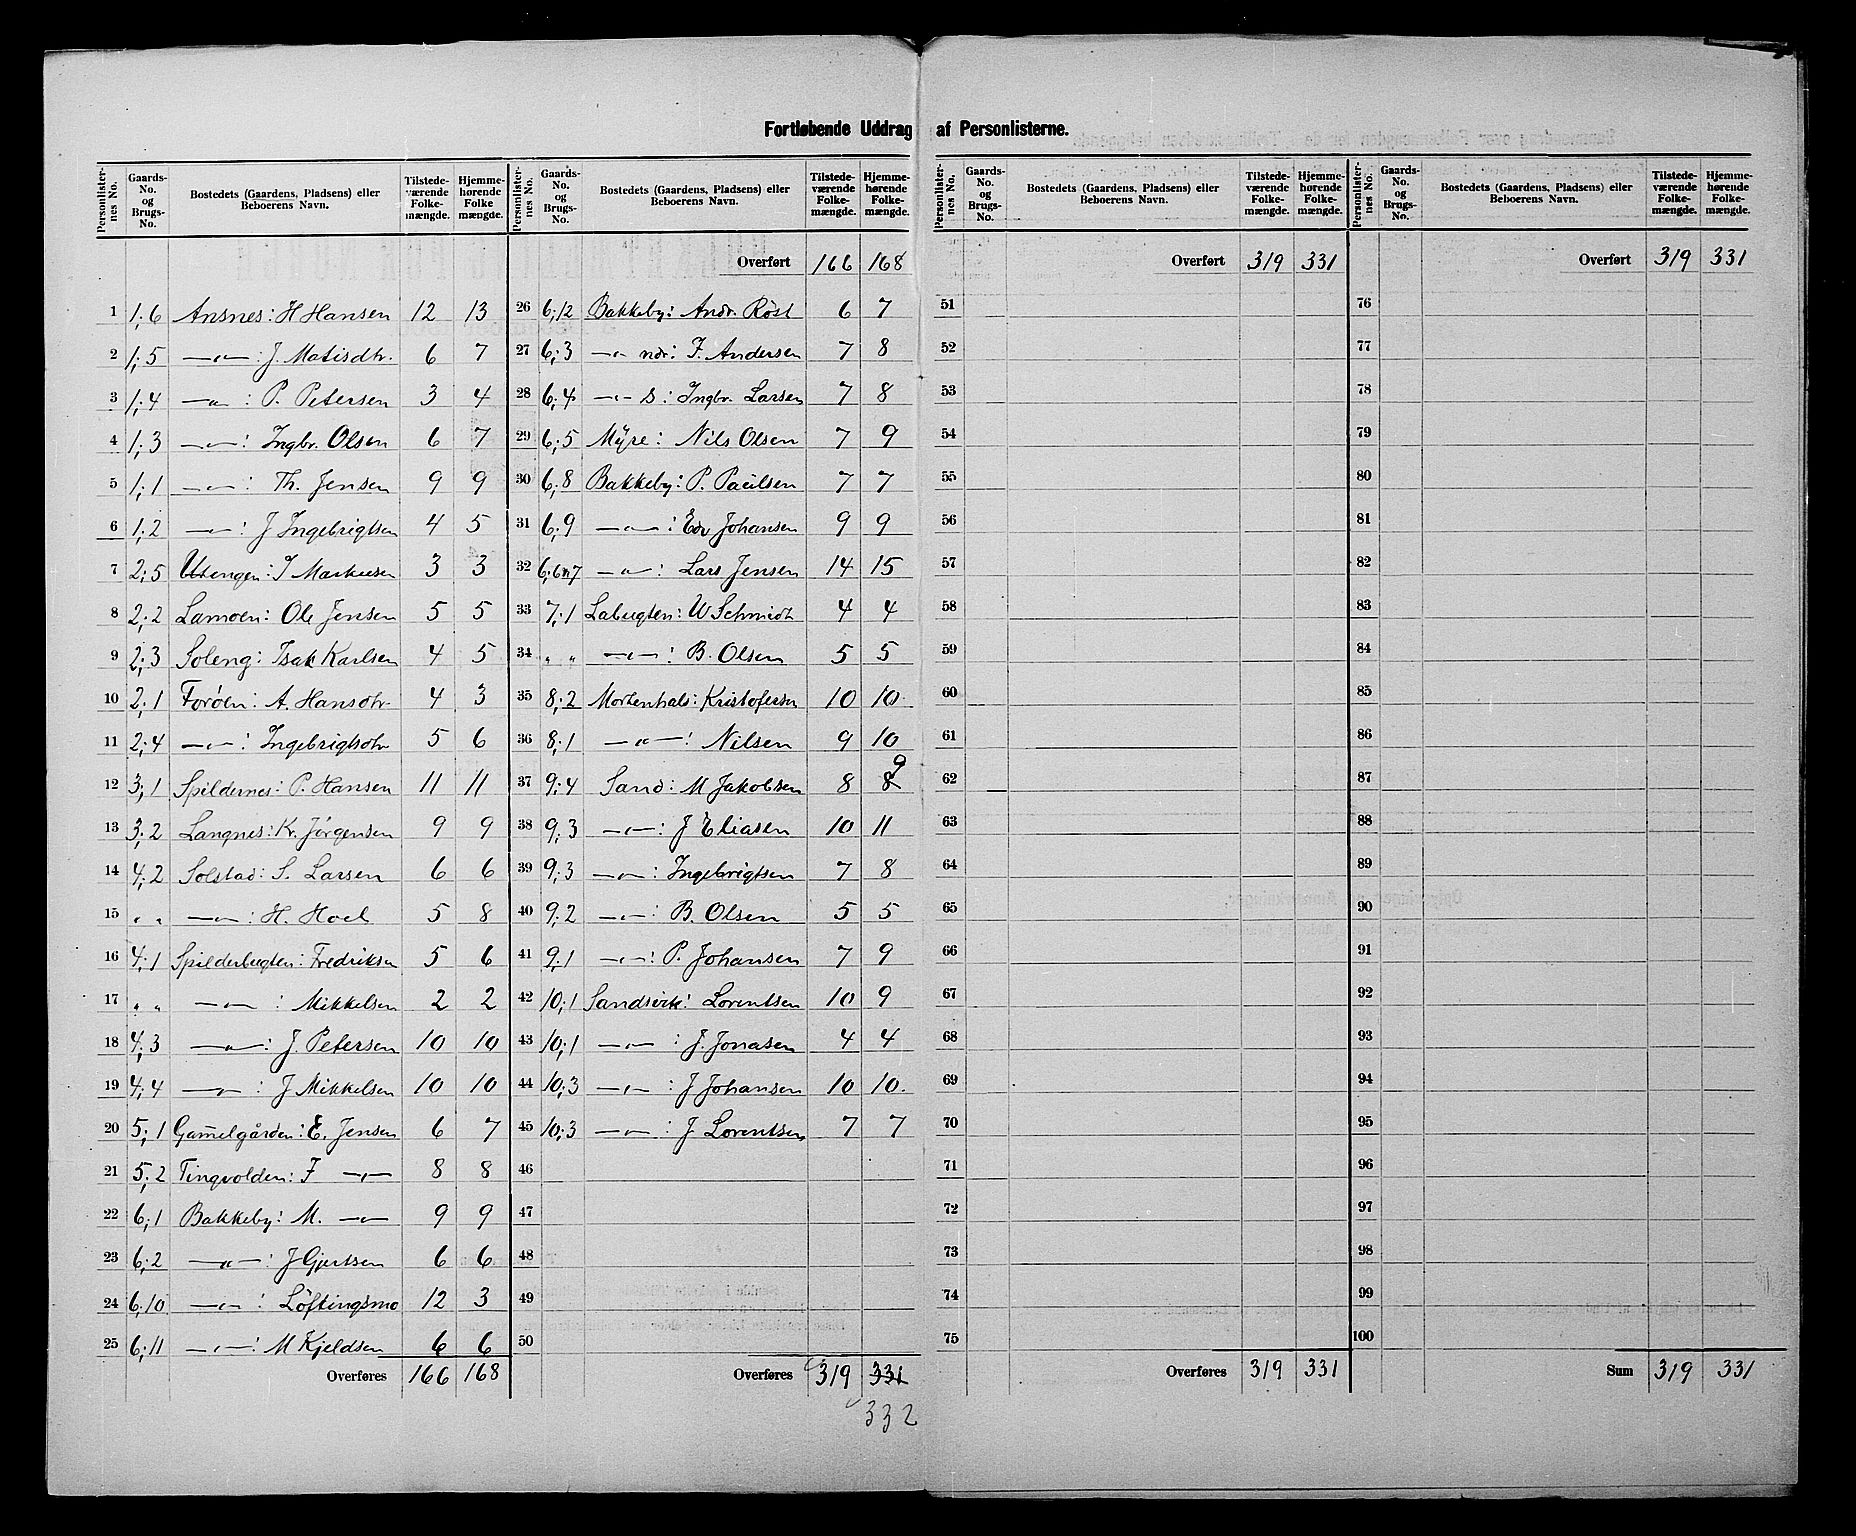 Fortløbende Uddrag af Personlisterne.
Personlisternes No. | Gaards-No. og Brugs-No. | Bostedets (Gaardens, Pladsens) eller Beboerens Navn. | Tilstedeværende Folkemængde. | Hjemmehørende Folkemængde.
1 | 1;6 | Ansnes: H Hansen | 12 | 13
2 | 1;5 | —"—: J. Matisdtr. | 6 | 7
3 | 1;4 | —"—: P. Petersen | 3 | 4
4 | 1;3 | —"—: Ingbr. Olsen | 6 | 7
5 | 1;1 | —"—: Th. Jensen | 9 | 9
6 | 1;2 | —"—: J Ingebrigtsen | 4 | 5
7 | 2;5 | Utengen: J Markusen | 3 | 3
8 | 2;2 | Lamoen: Ole Jensen | 5 | 5
9 | 2;3 | Soleng: Isak Karlsen | 4 | 5
10 | 2;1 | Forøen: A. Hansdtr. | 4 | 3
11 | 2;4 | —"—: Ingebrigtsdtr | 5 | 6
12 | 3;1 | Spildernes: P. Hansen | 11 | 11
13 | 3;2 | Langnes: Kr. Jørgensen | 9 | 9
14 | 4;2 | Solstad: S. Larsen | 6 | 6
15 | " " | —"—: H. Hoel | 5 | 8
16 | 4;1 | Spilderbugten: Fredriksen | 5 | 6
17 | " " | —"—: Mikkelsen | 2 | 2
18 | 4;3 | —"—: J. Petersen | 10 | 10
19 | 4;4 | —"—: J Mikkelsen | 10 | 10
20 | 5;1 | Gamelgården: E. Jensen | 6 | 7
21 | 5;2 | Tingvolden: F —"— | 8 | 8
22 | 6;1 | Bakkeby: M. —"— | 9 | 9
23 | 6;2 | —"—: J Gjertsen | 6 | 6
24 | 6;10 | —"—: Löftingsmo | 12 | 3
25 | 6;11 | —"—: M Kjeldsen | 6 | 6
Overføres | 166 | 168
Personlisternes No. | Gaards-No. og Brugs-No. | Bostedets (Gaardens, Pladsens) eller Beboerens Navn. | Tilstedeværende Folkemængde. | Hjemmehørende Folkemængde.
Overført | 166 | 168
26 | 6;12 | Bakkeby: Andr. Röst | 6 | 7
27 | 6;3 | —"— ndr: J. Andersen | 7 | 8
28 | 6;4 | —"— S: Ingbr. Larsen | 7 | 8
29 | 6;5 | Myre: Nils Olsen | 7 | 9
30 | 6;8 | Bakkeby: P. Paulsen | 7 | 7
31 | 6;9 | —"—: Edv Johansen | 9 | 9
32 | 6;6 n 7 | —"—: Lars Jensen | 14 | 15
33 | 7;1 | Labugten: W Schmidt | 4 | 4
34 | " " | —"—: B. Olsen | 5 | 5
35 | 8;2 | Mortenhals: Kristofersen | 10 | 10
36 | 8;1 | —"—: Nilsen | 9 | 10
37 | 9;4 | Sand: M Jakobsen | 8 | 8 9
38 | 9;3 | —"—: J Eliasen | 10 | 11
39 | 9;3 | —"—: Ingebrigtsen | 7 | 8
40 | 9;2 | —"—: B. Olsen | 5 | 5
41 | 9;1 | —"—: P. Johansen | 7 | 9
42 | 10;1 | Sandsvik: Lorentsen | 10 | 9
43 | 10;1 | —"—: J. Jonasen | 4 | 4
44 | 10;3 | —"—: J Johansen | 10 | 10.
45 | 10;3 | —"—: J Lorentsen | 7 | 7
46
47
48
49
50
Overføres | 319 | 331
332
Personlisternes No. | Gaards-No. og Brugs-No. | Bostedets (Gaardens, Pladsens) eller Beboerens Navn. | Tilstedeværende Folkemængde. | Hjemmehørende Folkemængde.
Overført | 319 | 331
51
52
53
54
55
56
57
58
59
60
61
62
63
64
65
66
67
68
69
70
71
72
73
74
75
Overføres | 319 | 331
Personlisternes No. | Gaards-No. og Brugs-No. | Bostedets (Gaardens, Pladsens) eller Beboerens Navn. | Tilstedeværende Folkemængde. | Hjemmehørende Folkemængde.
Overført | 319 | 331
76
77
78
79
80
81
82
83
84
85
86
87
88
89
90
91
92
93
94
95
96
97
98
99
100
Sum | 319 | 331